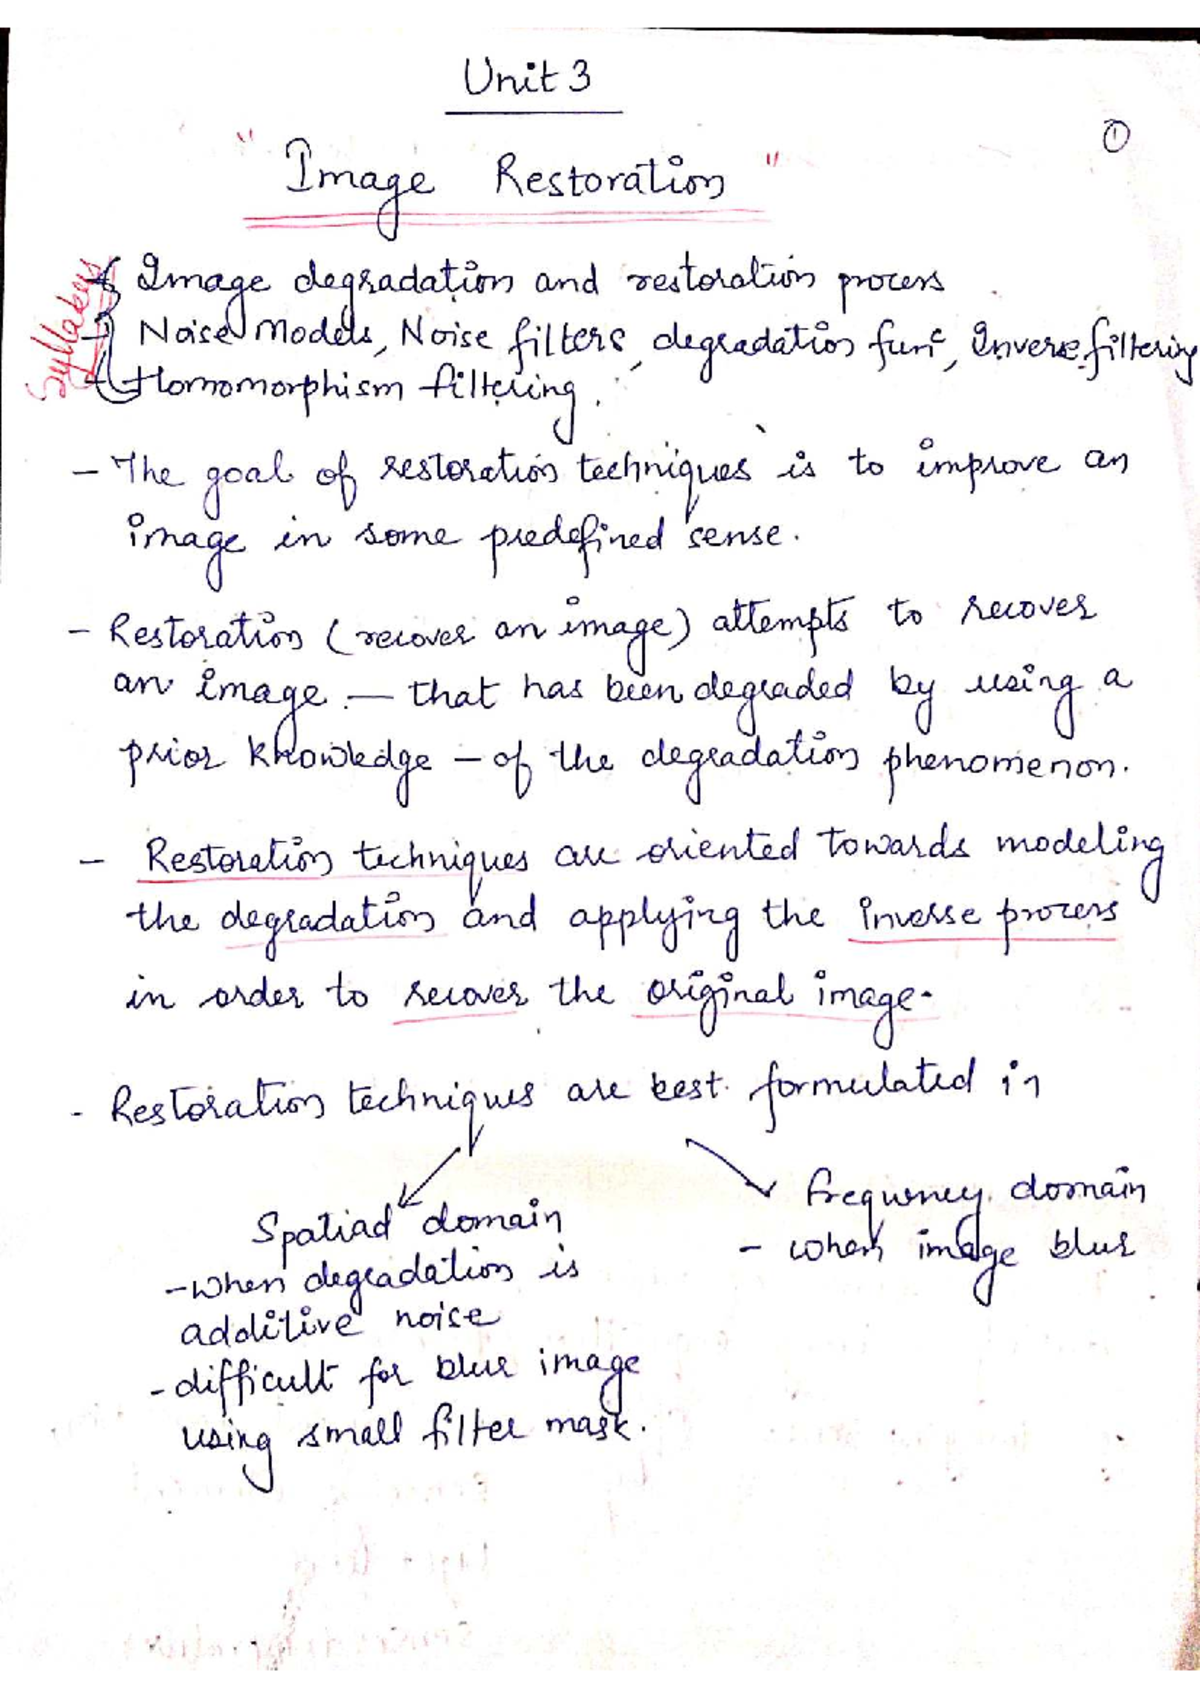 Unit 3
①
" Image Restoration "
Syllabus
Image degradation and restoration process
Noise Models, Noise filters, degradation func, Inverse filtering
Homomorphism filtering.
- The goal of restoration techniques is to improve an
image in some predefined sense.
- Restoration (recover an image) attempts to recover
an image — that has been degraded by using a
prior knowledge — of the degradation phenomenon.
- Restoration techniques are oriented towards modeling
the degradation and applying the inverse process
in order to recover the original image.
- Restoration techniques are best formulated in
Spatial domain
- when degradation is
additive noise
- difficult for blur image
using small filter mask.
frequency domain
- when image blur